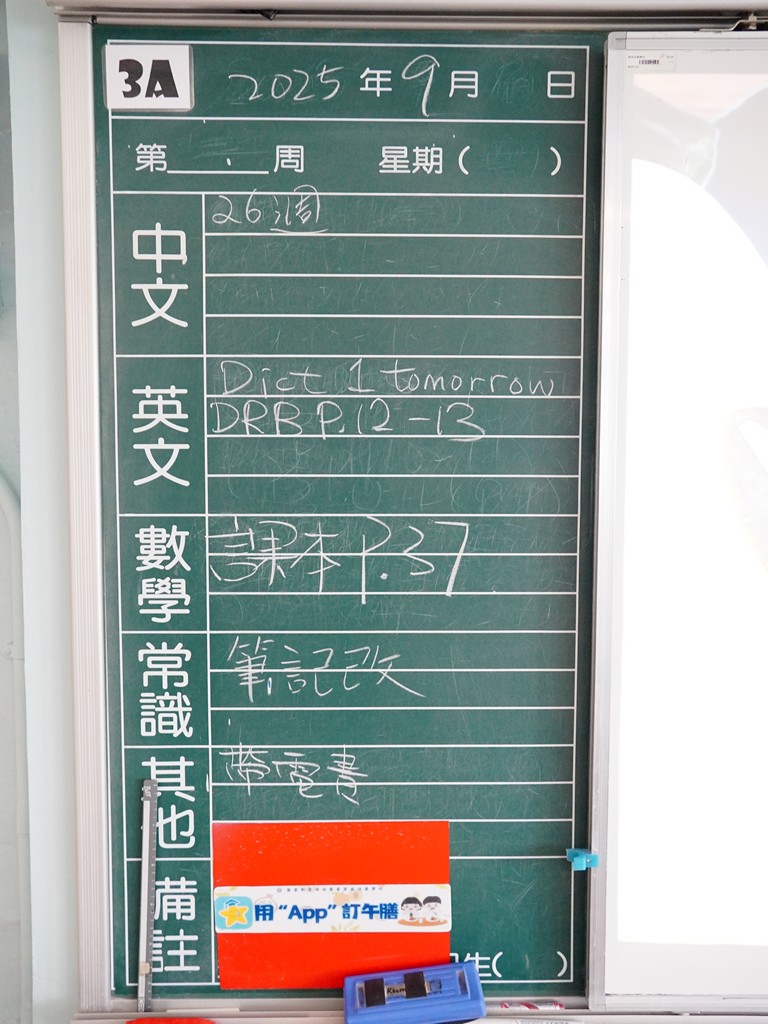 3A
2025 年 9 月 日
第 周 星期( )
中文
26週
英文
Dict 1 tomorrow
DRB P.12-13
數學
課本 P.37
常識
筆記改
其他
帶電書
備註
用“App”訂午膳
生( )